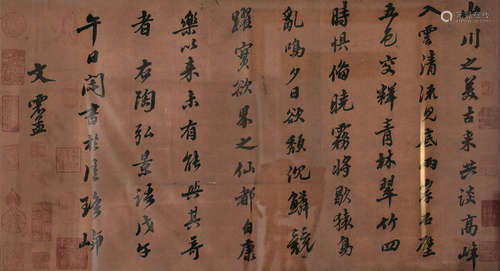 山川之美古来共談高峰
入雲清流見底兩岸石壁
五色交輝青林翠竹四
時俱備曉霧將歇猿鳥
亂鳴夕日欲頹沉鱗競
躍實欲界之仙都自康
樂以来未有能與其奇
者右陶弘景語戊午
午日書於
文震孟